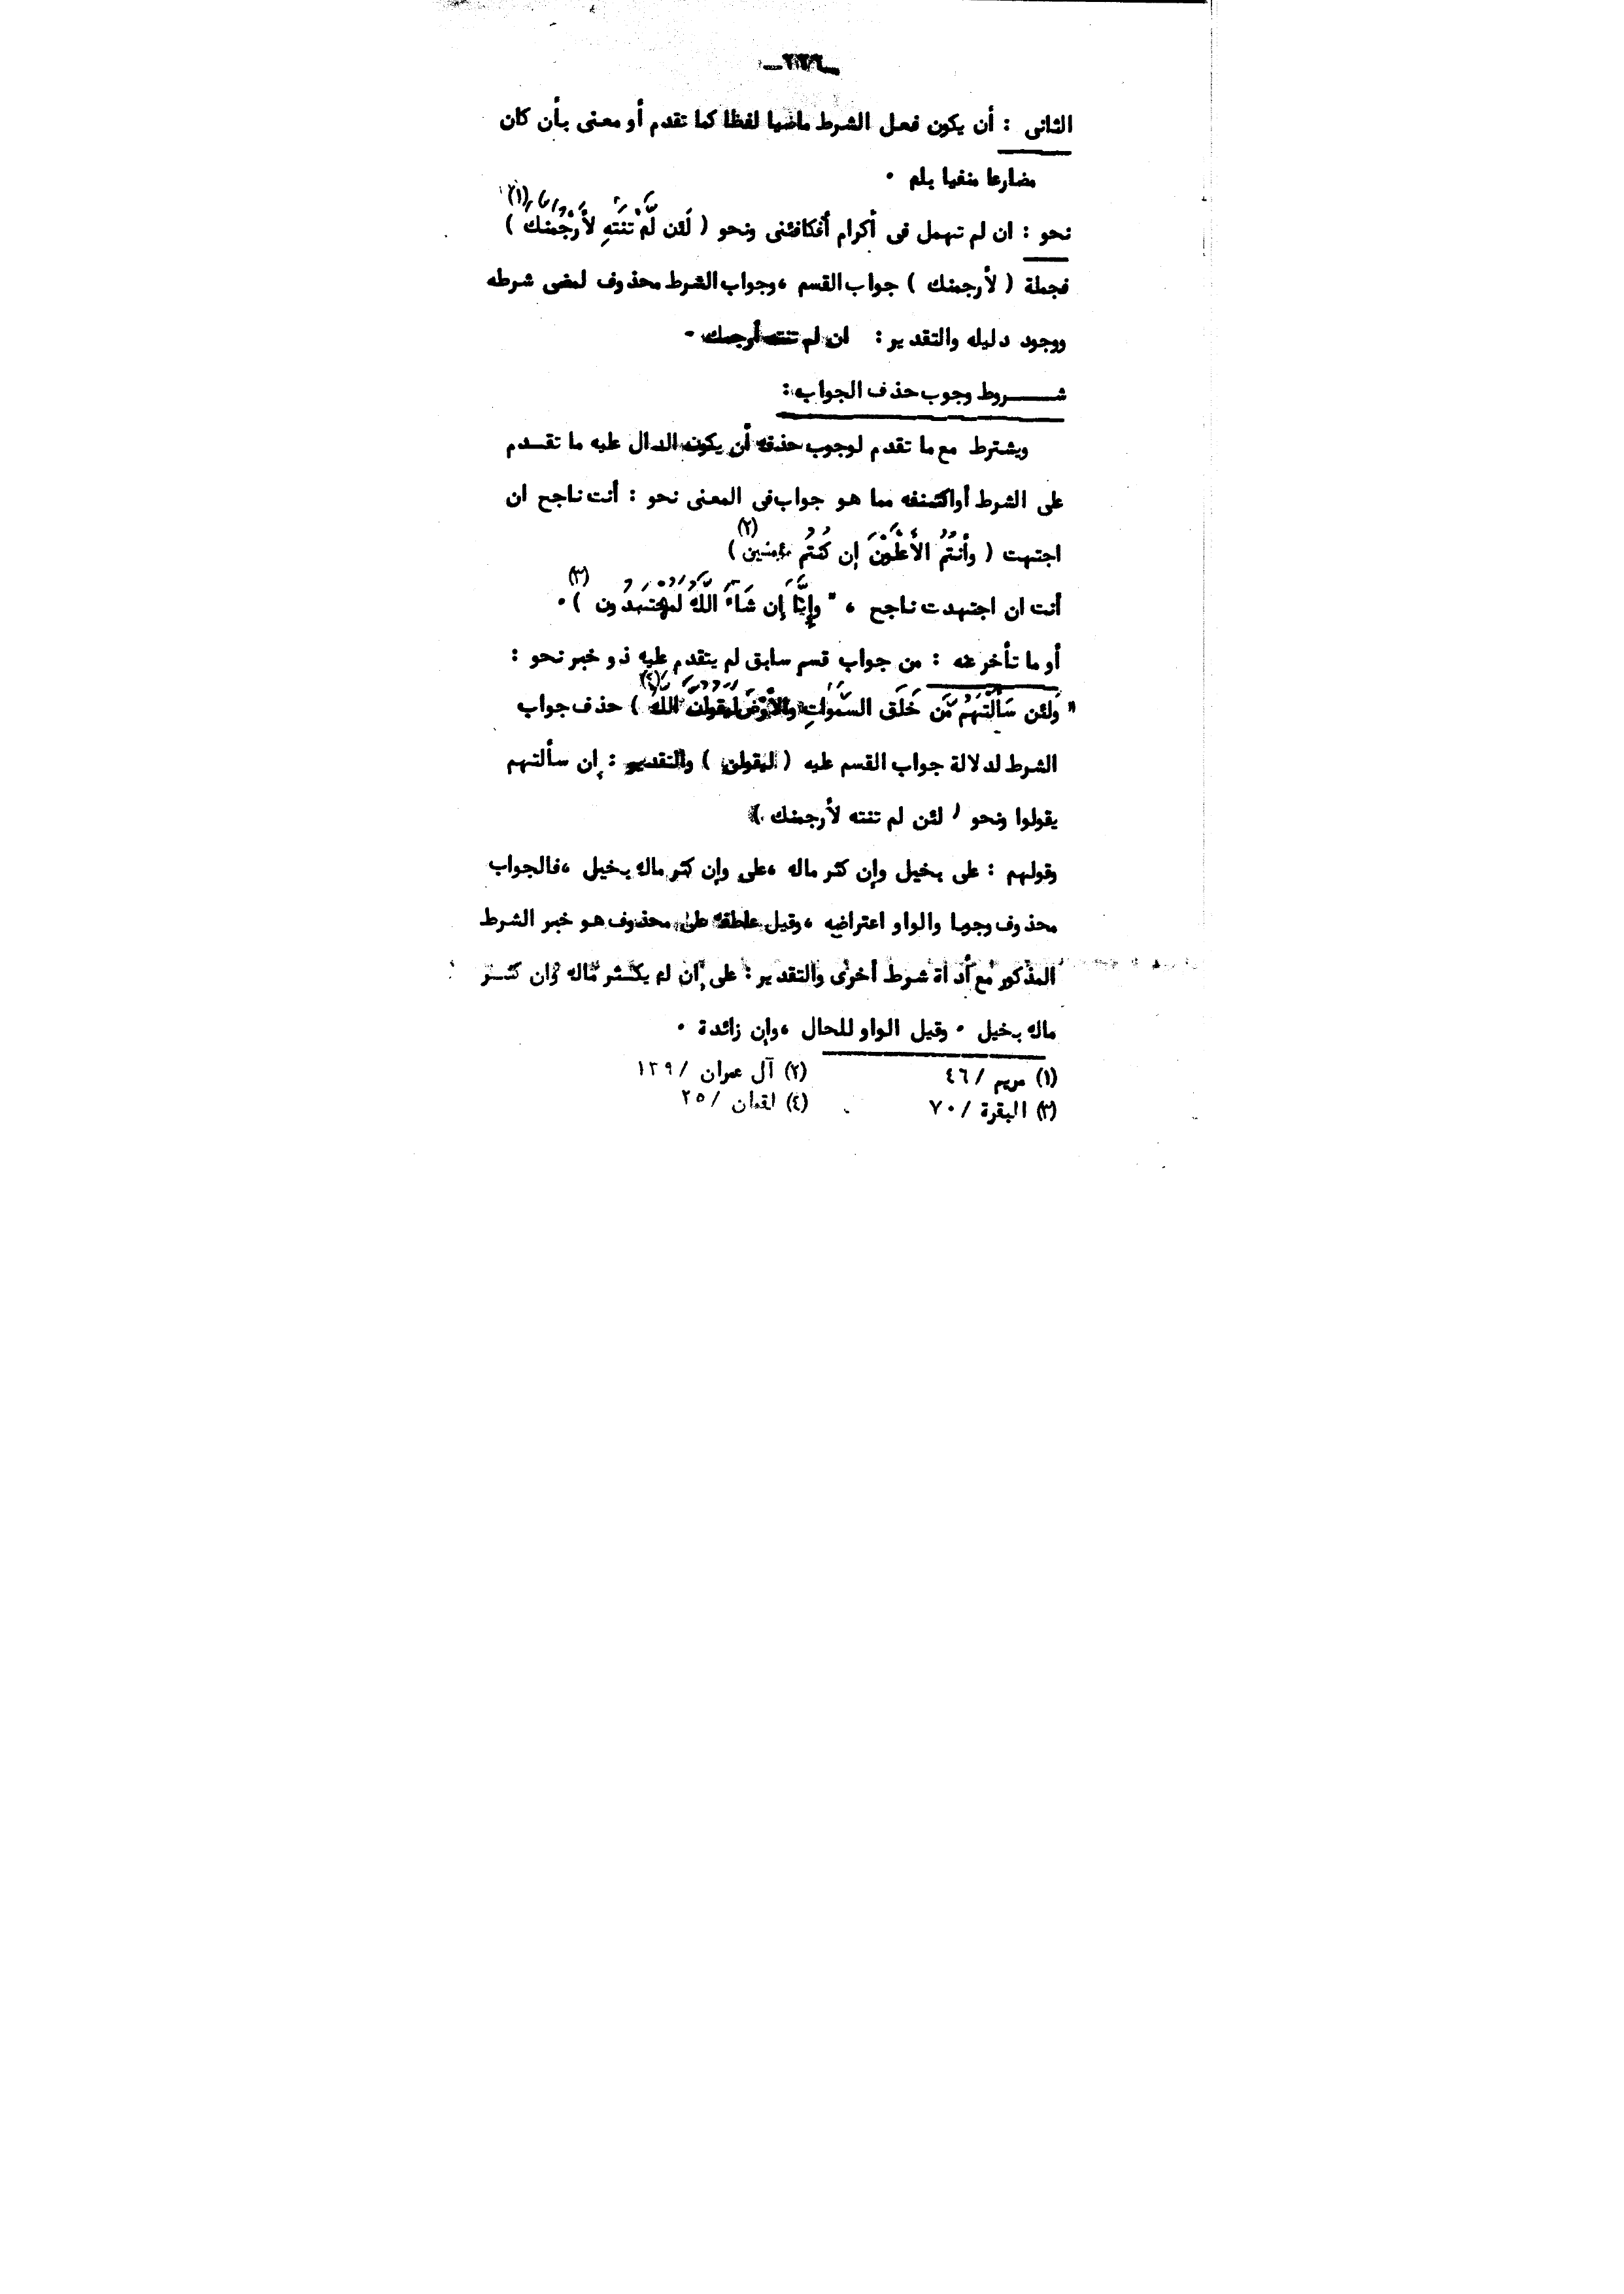 الثانى : أن يكون فعل الشرط ماضيا لفظا كما تقدم أو معنى بأن كان
مضارعا منفيا بلم ٠
نحو : ان لم تهمل فى أكرام أفكافئنى ونحو ( لَئن لَّمْ تَنتَهِ لأَرْجُمَنكَ ) (١)
فجملة ( لأرجمنك ) جواب القسم ، وجواب الشرط محذوف لمضى شرطه
ووجود دليله والتقدير : ان لم تنته أرجمك ٠
شـــــروط وجوب حذف الجواب :
ويشترط مع ما تقدم لوجوب حذفه أن يكون الدال عليه ما تقــدم
على الشرط أو اكتنفه مما هو جواب فى المعنى نحو : أنت ناجح ان
اجتهت ( وأنتُمُ الأَعْلَوْنَ إن كُنتُم مؤمنين ) (٢)
أنت ان اجتهدت ناجح ، " وإِنَّا إن شَاءَ اللَّهُ لمهْتَدُون ) ٠ (٣)
أو ما تأخر عنه : من جواب قسم سابق لم يتقدم عليه ذو خبر نحو :
" وَلئن سَأَلْتَهُم مَّن خَلَق السَّموات والأرْضَ ليقولن الله ) (٤) حذف جواب
الشرط لدلالة جواب القسم عليه ( ليقولن ) والتقدير : إن سألتهم
يقولوا ونحو ( لئن لم تنته لأرجمنك )
وقولهم : على بخيل وإن كثر ماله ، على وإن كثر ماله بخيل ، فالجواب
محذوف وجوبا والواو اعتراضيه ، وقيل عاطفه على محذوف هو خبر الشرط
المذكور مع أداة شرط أخرى والتقدير : على إن لم يكــثر ماله وان كثــر
ماله بخيل ٠ وقيل الواو للحال ، وإن زائدة ٠
(١) مريم / ٤٦ (٢) آل عمران / ١٣٩
(٣) البقرة / ٧٠ (٤) لقمان / ٢٥